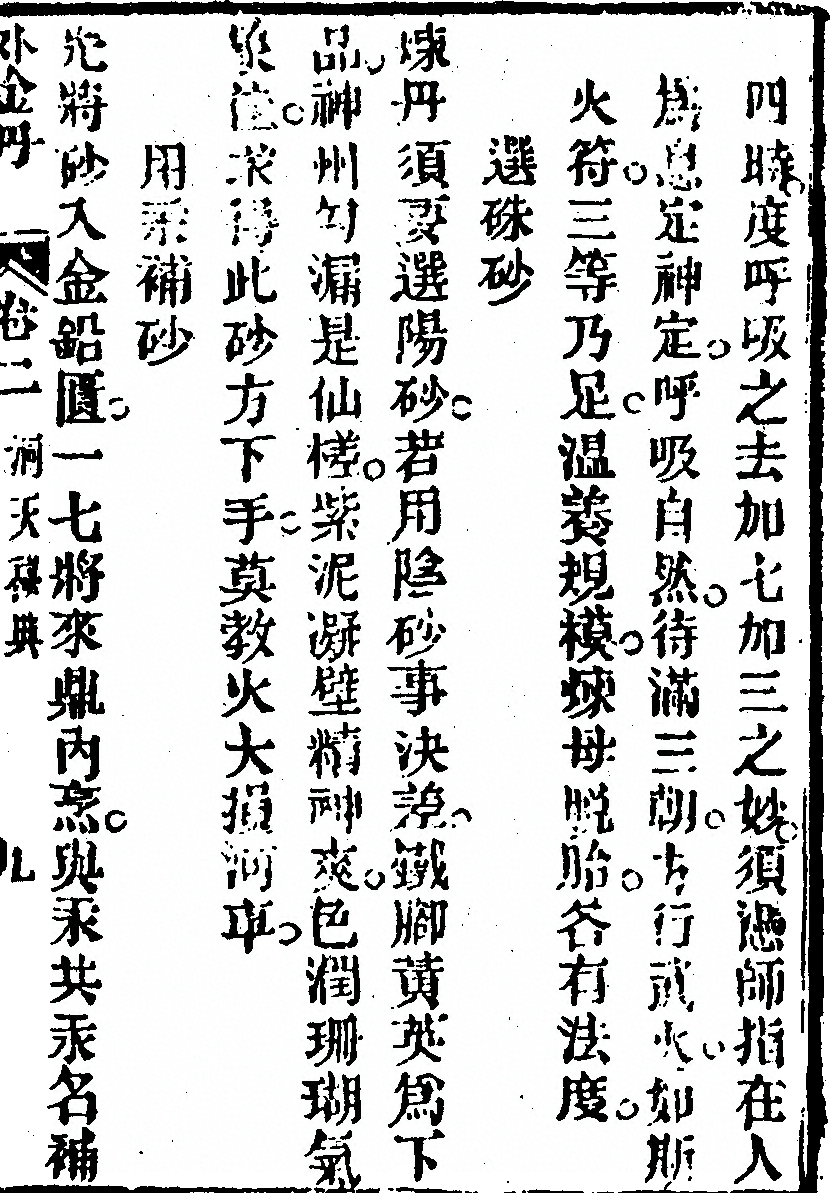 四時度呼吸之去加七加三之妙須憑師指在人
爲息定神定呼吸自然待滿三朝方行武火如斯
火符三等乃足溫養規模煉母脫胎各有法度
選硃砂
煉丹須要選陽砂若用陰砂事決證鐵腳黃英爲下
品神州勾漏是仙槎紫泥凝壁精神爽色潤珊瑚氣
象佳求得此砂方下手莫教火大損河車
用汞補砂
先將砂入金鉛匱一七將來鼎內烹與汞共汞名補
外金丹 卷二 洞天秘典 九